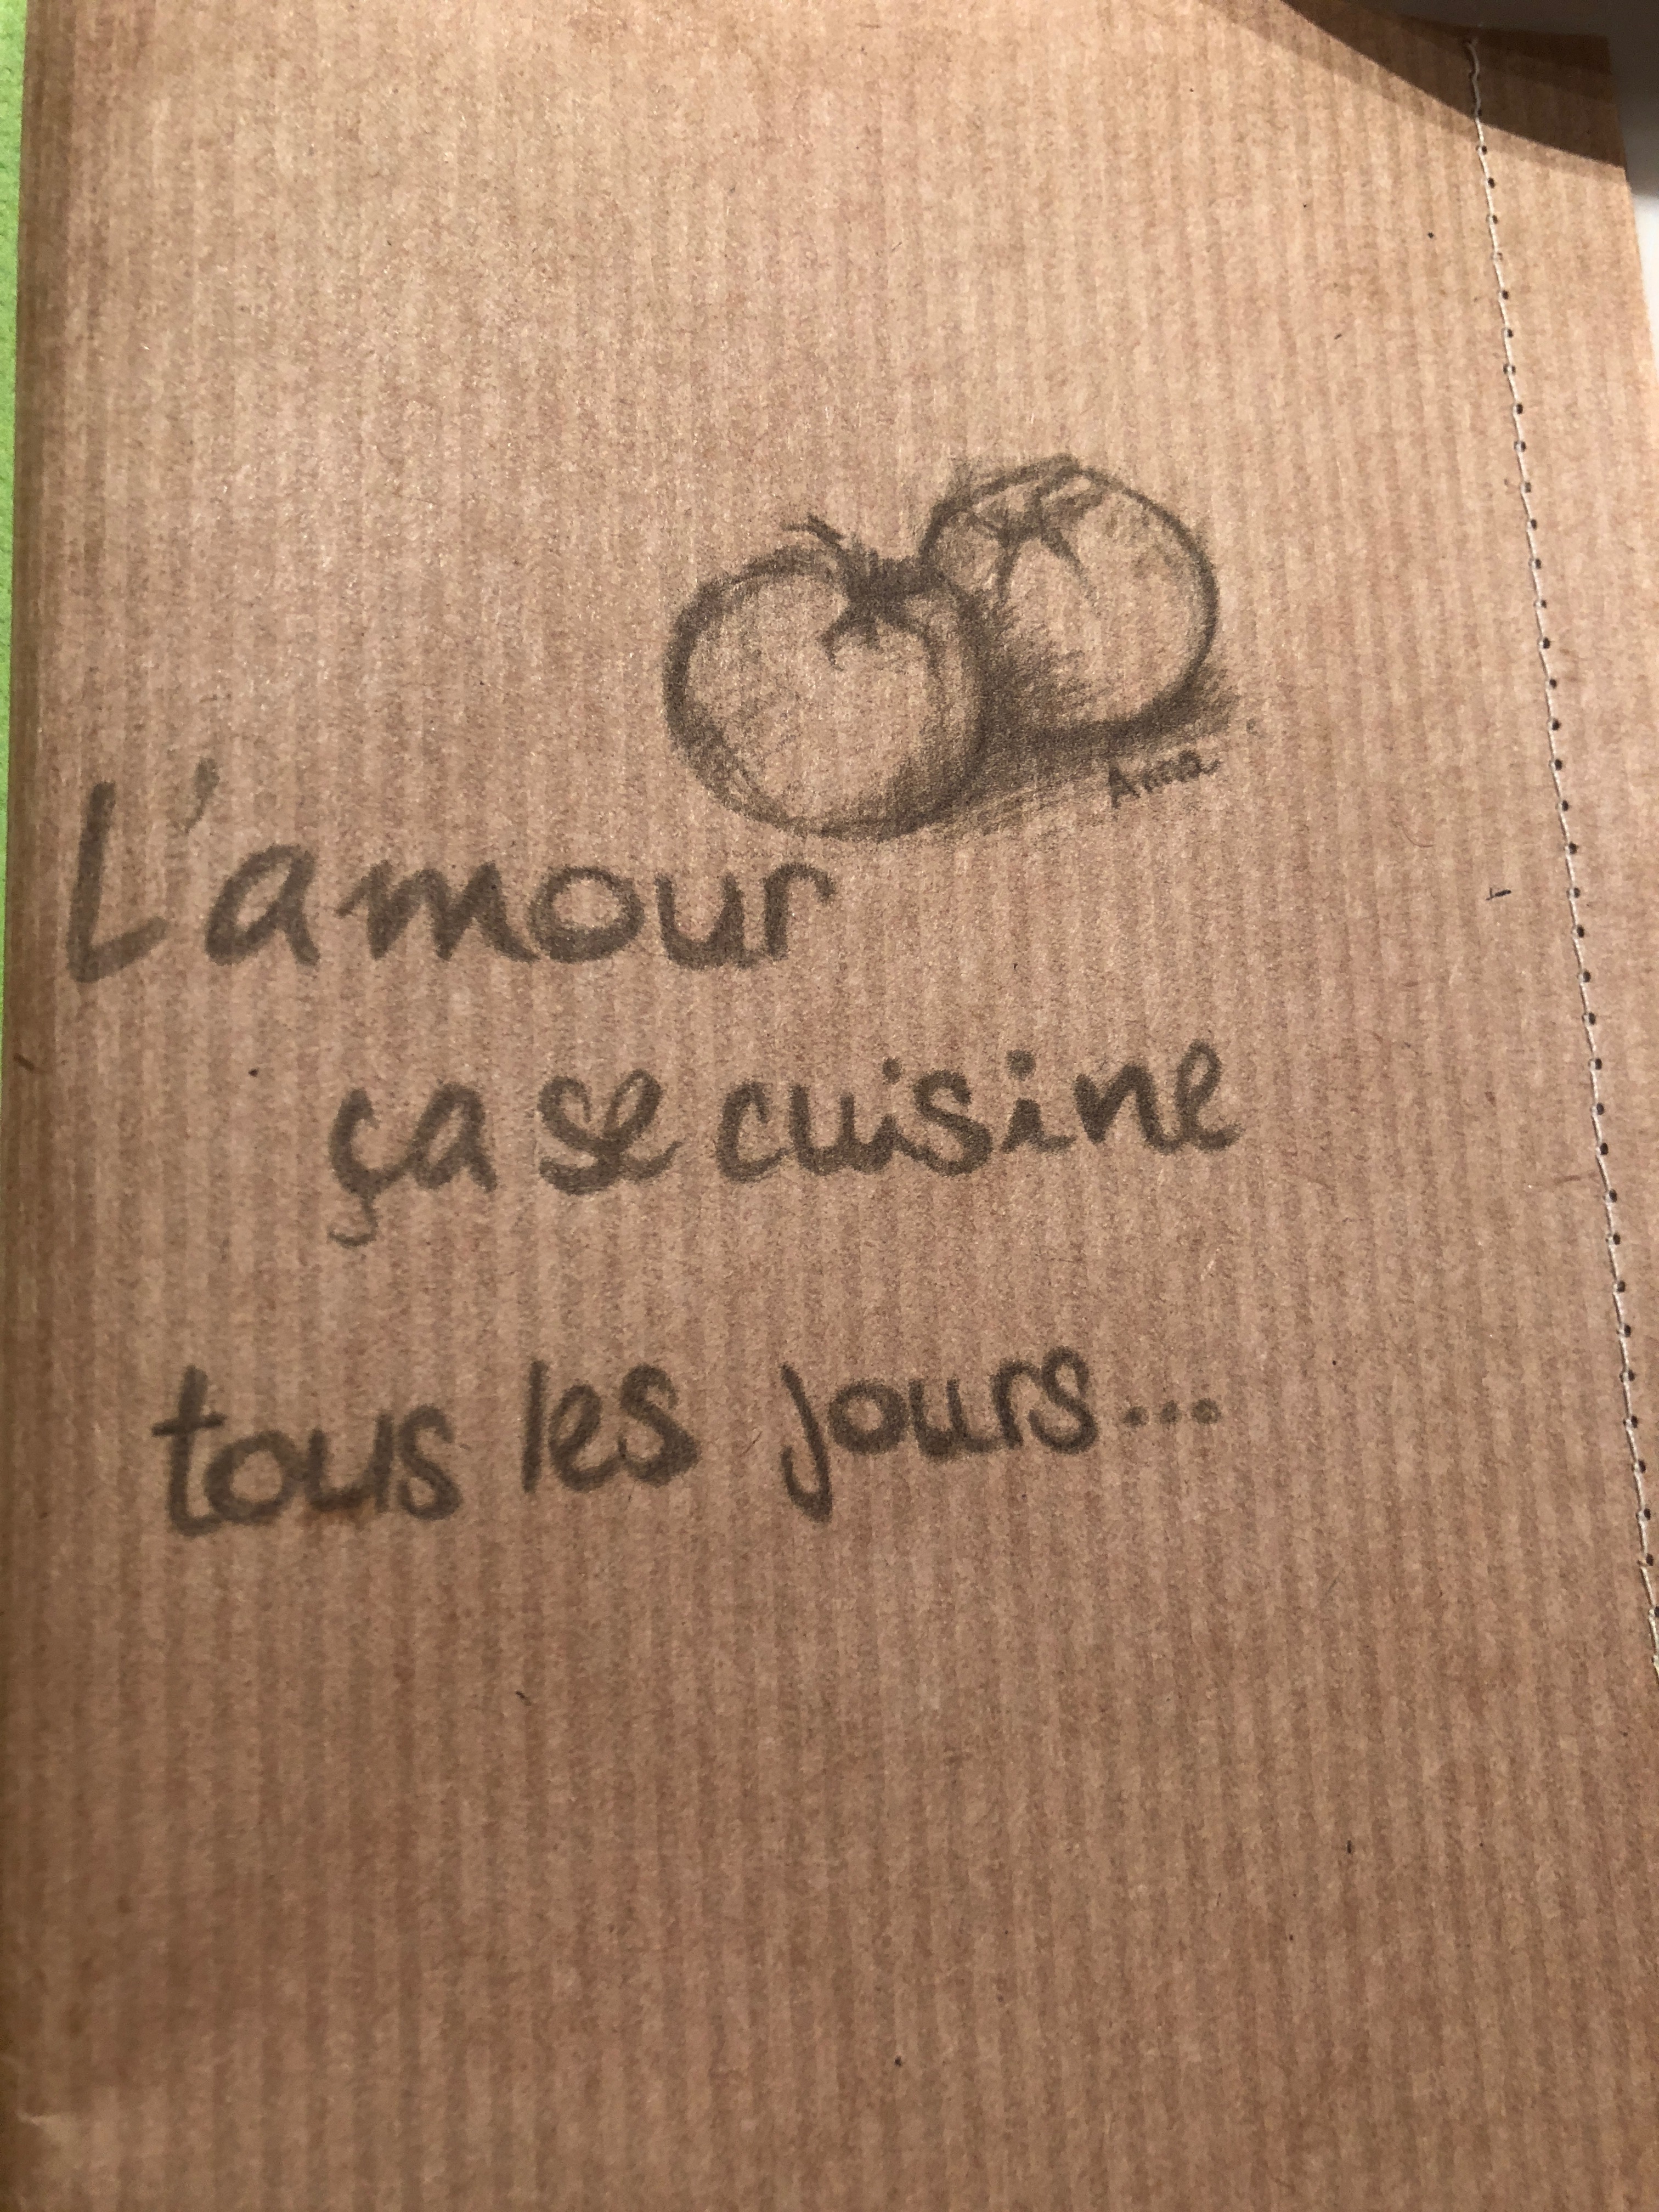 Anna
L'amour
ça se cuisine
tous les jours...